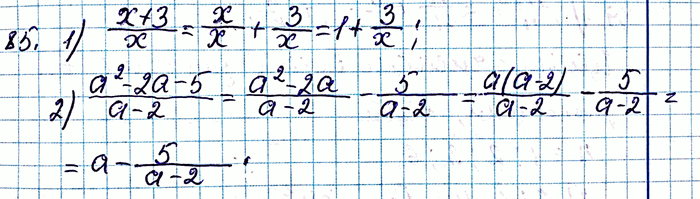 85. 1) \frac{x+3}{x} = \frac{x}{x} + \frac{3}{x} = 1 + \frac{3}{x};
2) \frac{a^2-2a-5}{a-2} = \frac{a^2-2a}{a-2} - \frac{5}{a-2} = \frac{a(a-2)}{a-2} - \frac{5}{a-2} =
= a - \frac{5}{a-2}.